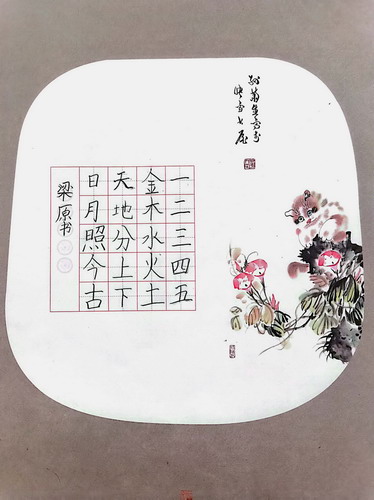 一二三四五
金木水火土
天地分上下
日月照今古
梁原书